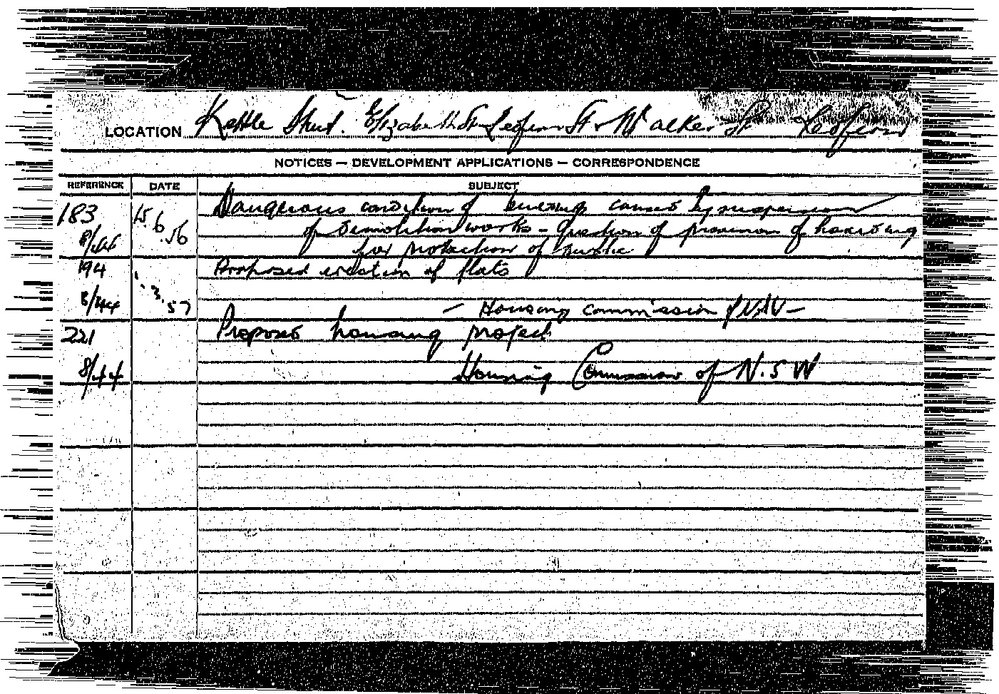 LOCATION Kettle Street. Elizabeth St Redfern St & Walker St Redfern
NOTICES — DEVELOPMENT APPLICATIONS — CORRESPONDENCE
REFERENCE DATE SUBJECT
183 15.6.56 Dangerous condition of building caused by suspension
of demolition works - Question of provision of hoarding
for protection of public
194 Proposed erection of flats
8/44 .3.57 — Housing Commission of N.S.W —
221 Proposed housing project
8/44 Housing Commission of N.S.W